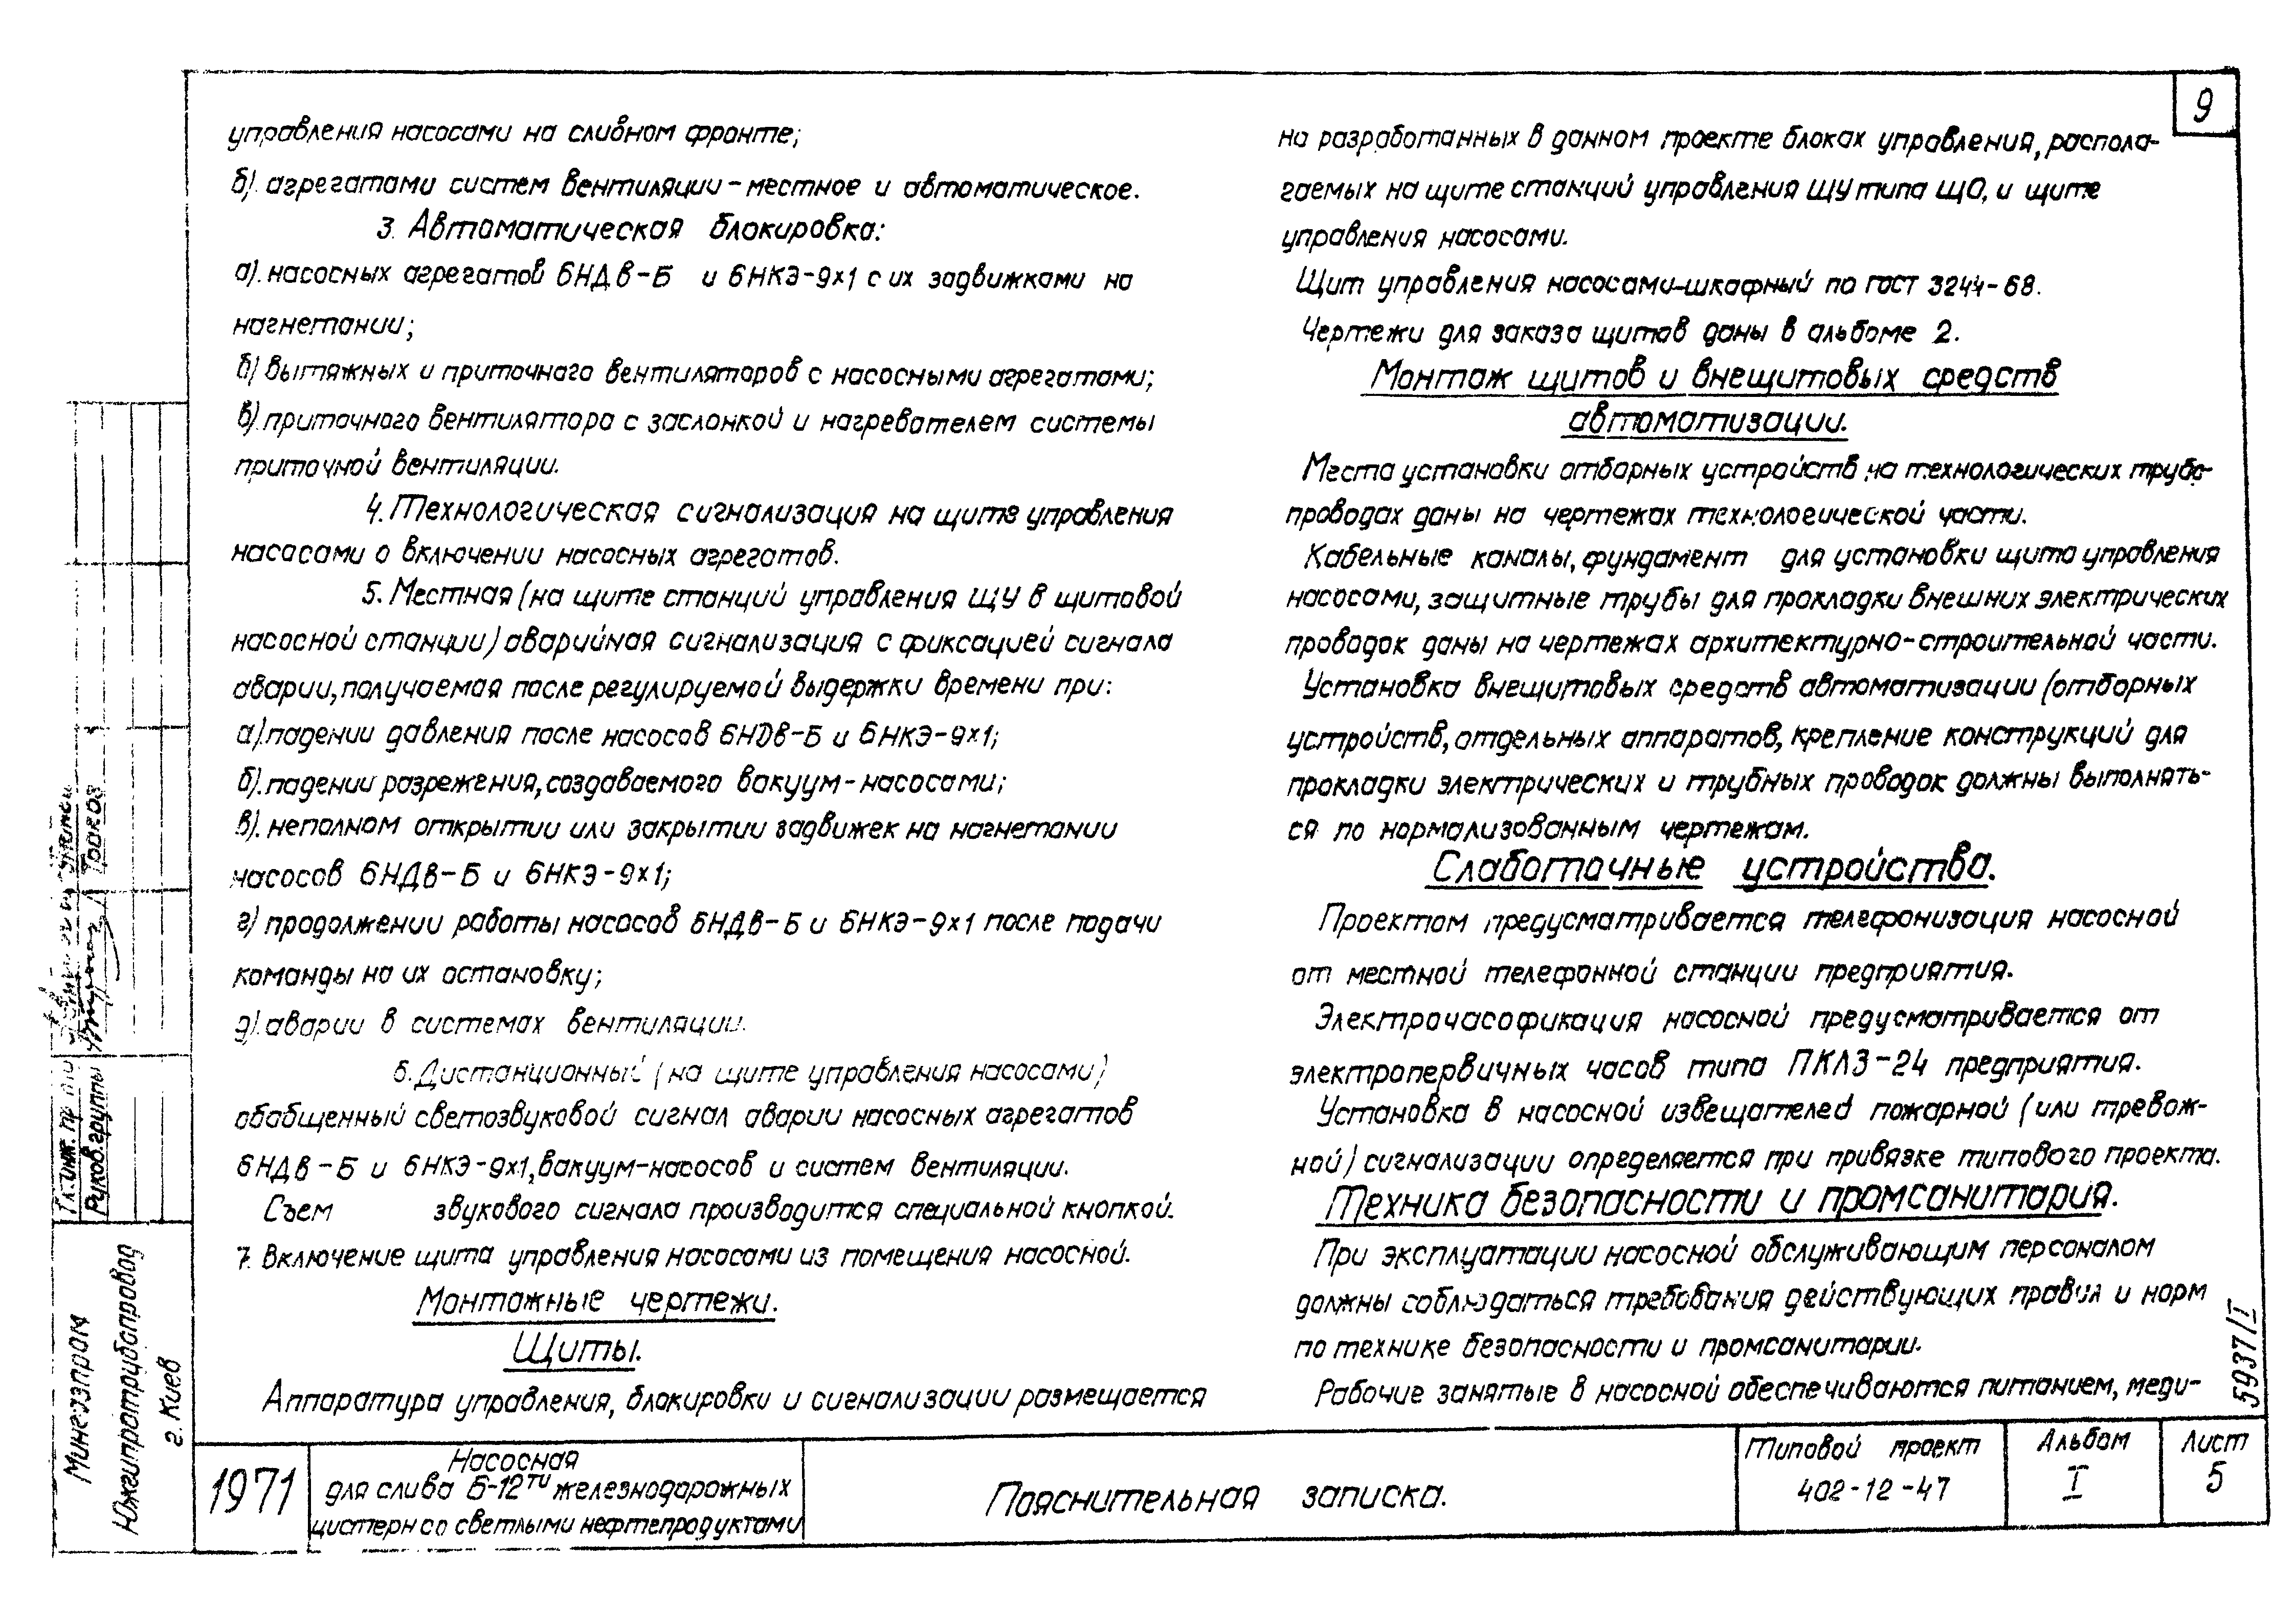 9
управления насосами на сливном фронте;
б). агрегатами систем вентиляции - местное и автоматическое.
3. Автоматическая блокировка:
а). насосных агрегатов 6НДВ-Б и 6НКЭ-9х1 с их задвижками на
нагнетании;
б) вытяжных и приточного вентиляторов с насосными агрегатами;
в). приточного вентилятора с заслонкой и нагревателем системы
приточной вентиляции.
4. Технологическая сигнализация на щите управления
насосами о включении насосных агрегатов.
5. Местная (на щите станций управления ЩУ в щитовой
насосной станции) аварийная сигнализация с фиксацией сигнала
аварии, получаемая после регулируемой выдержки времени при:
а). падении давления после насосов 6НДВ-Б и 6НКЭ-9х1;
б). падении разрежения, создаваемого вакуум-насосами;
в). неполном открытии или закрытии задвижек на нагнетании
насосов 6НДВ-Б и 6НКЭ-9х1;
г) продолжении работы насосов 6НДВ-Б и 6НКЭ-9х1 после подачи
команды на их остановку;
д). аварии в системах вентиляции.
6. Дистанционный (на щите управления насосами)
обобщенный светозвуковой сигнал аварии насосных агрегатов
6НДВ-Б и 6НКЭ-9х1, вакуум-насосов и систем вентиляции.
Съем звукового сигнала производится специальной кнопкой.
7. Включение щита управления насосами из помещения насосной.
Монтажные чертежи.
Щиты.
Аппаратура управления, блокировки и сигнализации размещается
на разработанных в данном проекте блоках управления, распола-
гаемых на щите станций управления ЩУ типа ЩО, и щите
управления насосами.
Щит управления насосами-шкафный по ГОСТ 3244-68.
Чертежи для заказа щитов даны в альбоме 2.
Монтаж щитов и внещитовых средств
автоматизации.
Места установки отборных устройств на технологических трубо-
проводах даны на чертежах технологической части.
Кабельные каналы, фундамент для установки щита управления
насосами, защитные трубы для прокладки внешних электрических
проводок даны на чертежах архитектурно-строительной части.
Установка внещитовых средств автоматизации (отборных
устройств, отдельных аппаратов, крепление конструкций для
прокладки электрических и трубных проводок должны выполнять-
ся по нормализованным чертежам.
Слаботочные устройства.
Проектом предусматривается телефонизация насосной
от местной телефонной станции предприятия.
Электрочасофикация насосной предусматривается от
электропервичных часов типа ПКЛ3-24 предприятия.
Установка в насосной извещателей пожарной (или тревож-
ной) сигнализации определяется при привязке типового проекта.
Техника безопасности и промсанитария.
При эксплуатации насосной обслуживающим персоналом
должны соблюдаться требования действующих правил и норм
по технике безопасности и промсанитарии.
Рабочие занятые в насосной обеспечиваются питанием, меди-
5937/I
Гл. инж. пр-та
Руков. группы
Мингазпром
Южгипротрубопровод
г. Киев
1971
Насосная
для слива 6-12ти железнодорожных
цистерн со светлыми нефтепродуктами
Пояснительная записка.
Типовой проект
402-12-47
Альбом
I
Лист
5